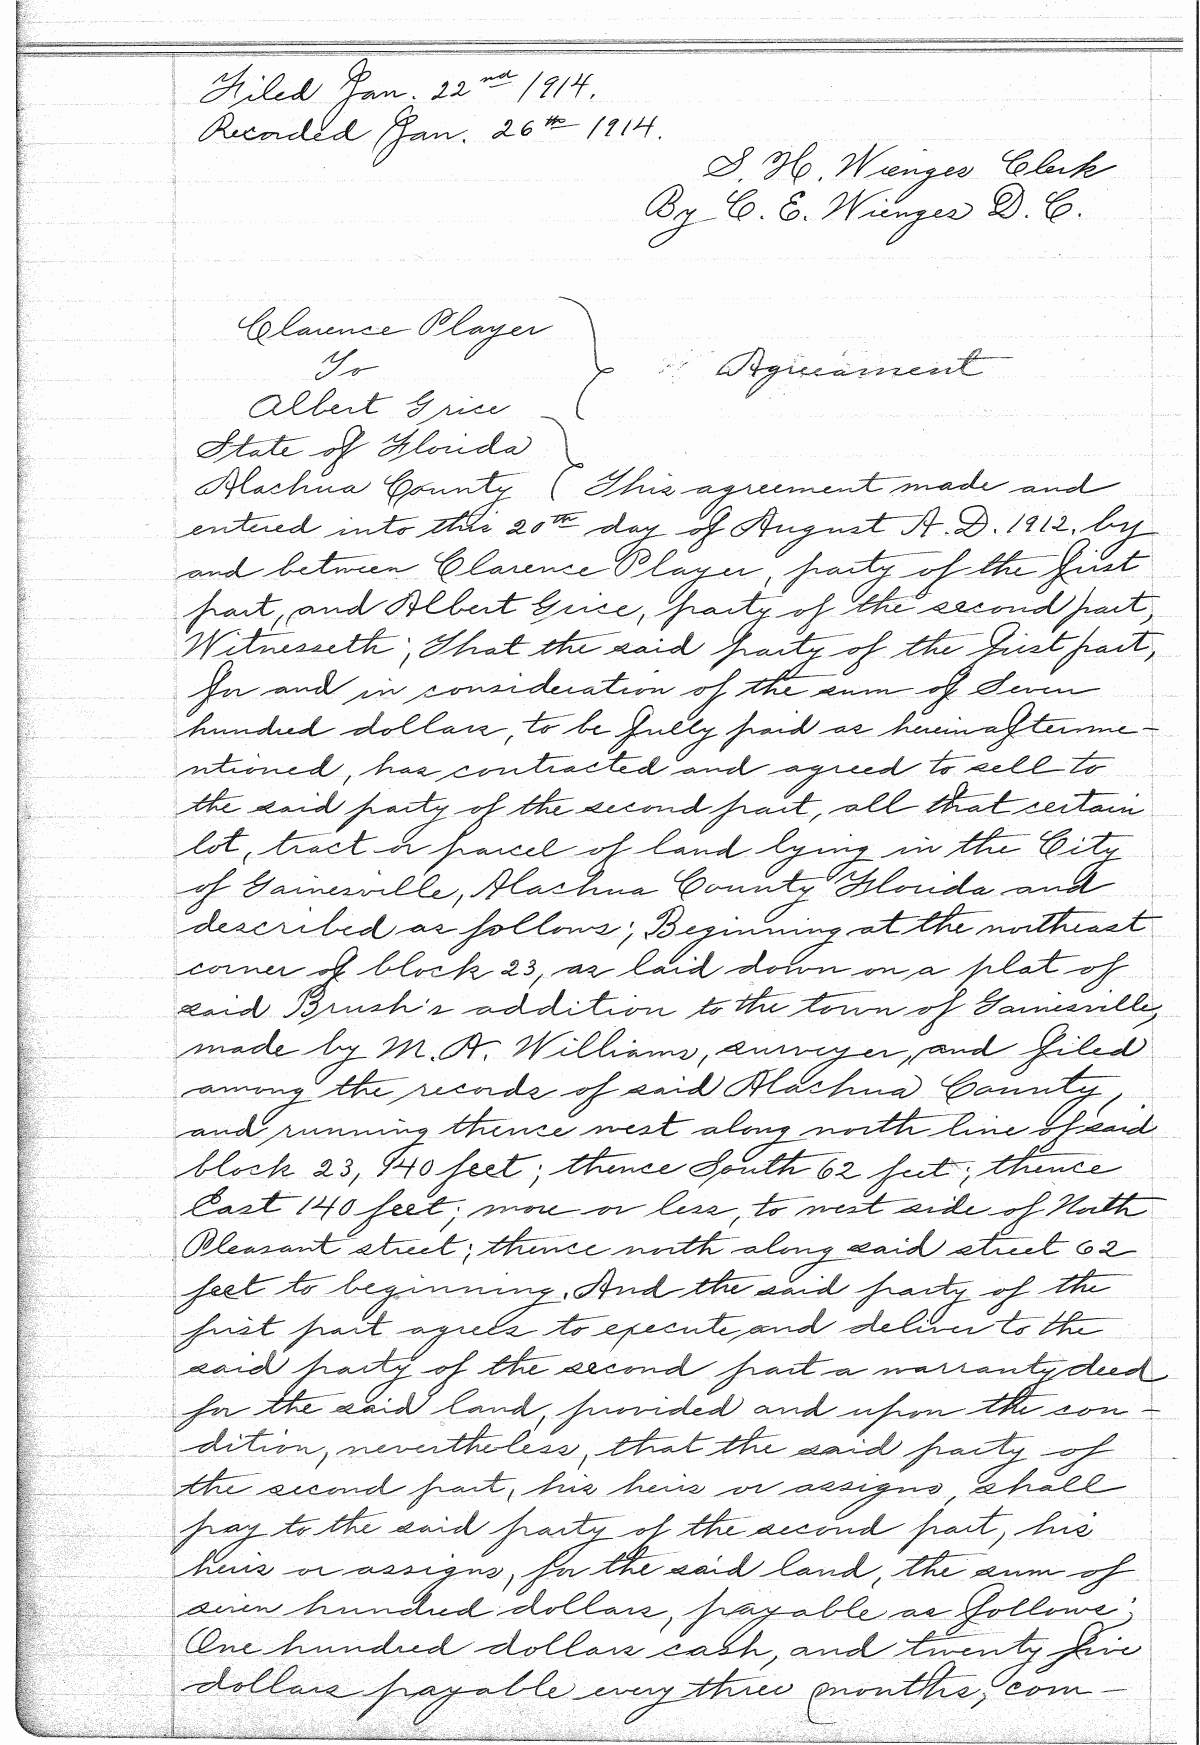 Filed Jan. 22nd 1914.
Recorded Jan. 26th 1914.
S. H. Wienges Clerk
By C. E. Wienges D. C.
Clarence Player
To
Agreeament
Albert Grice
State of Florida
Alachua County ( This agreement made and
entered into this 20th day of August A. D. 1912, by
and between Clarence Player, party of the first
part, and Albert Grice, party of the second part,
Witnesseth; That the said party of the first part,
for and in consideration of the sum of Seven
hundred dollars, to be fully paid as hereinafterme-
ntioned, has contracted and agreed to sell to
the said party of the second part, all that certain
lot, tract or parcel of land lying in the City
of Gainesville, Alachua County Florida and
described as follows; Beginning at the northeast
corner of block 23, as laid down on a plat of
said Brush's addition to the town of Gainesville,
made by M. A. Williams, surveyer, and filed
among the records of said Alachua County,
and running thence west along north line of said
block 23, 140 feet; thence South 62 feet; thence
East 140 feet; more or less, to west side of North
Pleasant street; thence north along said street 62
feet to beginning. And the said party of the
first part agrees to execute, and deliver to the
said party of the second part a warranty deed
for the said land, provided and upon the con-
dition, nevertheless, that the said party of
the second part, his heirs or assigns, shall
pay to the said party of the second part, his
heirs or assigns, for the said land, the sum of
seven hundred dollars, payable as follows;
One hundred dollars cash, and twenty five
dollars payable every three months, com-